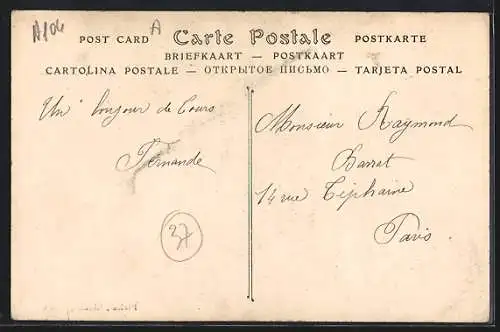 A106
A
POST CARD Carte Postale POSTKARTE
BRIEFKAART — POSTKAART
CARTOLINA POSTALE — ОТКРЫТОЕ ПИСЬМО — TARJETA POSTAL
Un bonjour de Tours
Fernande
37
Monsieur Raymond
Barrat
14 rue Tiphaine
Paris.